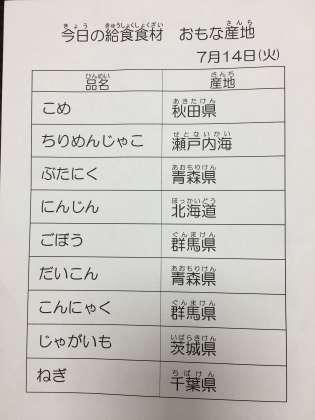 今日の給食食材 おもな産地
7月14日(火)
品名 産地
こめ 秋田県
ちりめんじゃこ 瀬戸内海
ぶたにく 青森県
にんじん 北海道
ごぼう 群馬県
だいこん 青森県
こんにゃく 群馬県
じゃがいも 茨城県
ねぎ 千葉県